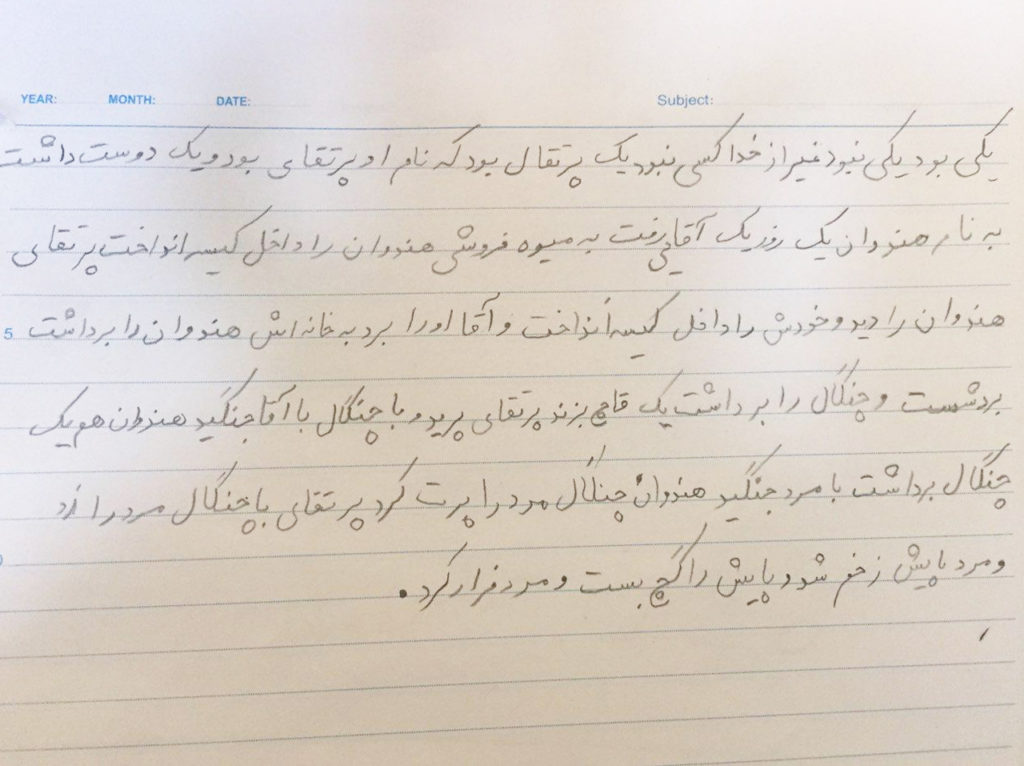 YEAR: MONTH: DATE: Subject:
یکی بود یکی نبود غیر از خدا کسی نبود یک پرتقال بود که نام او پرتقای بود و یک دوست داشت
به نام هندوان یک روز یک آقایی رفت به میوه فروشی هندوان را داخل کیسه انداخت پرتقای
5 هندوان را دید و خودش را داخل کیسه انداخت و آقا او را برد به خانه اش هندوان را برداشت
برد شست و چنگال را برداشت یک قاچ بزند پرتقای پرید و با چنگال با آقا جنگید هندوان هم یک
چنگال برداشت با مرد جنگید هندوان چنگال مرد را پرت کرد پرتقای با چنگال مرد را زد
و مرد پایش زخم شد و پایش را گچ بست و مرد فرار کرد.